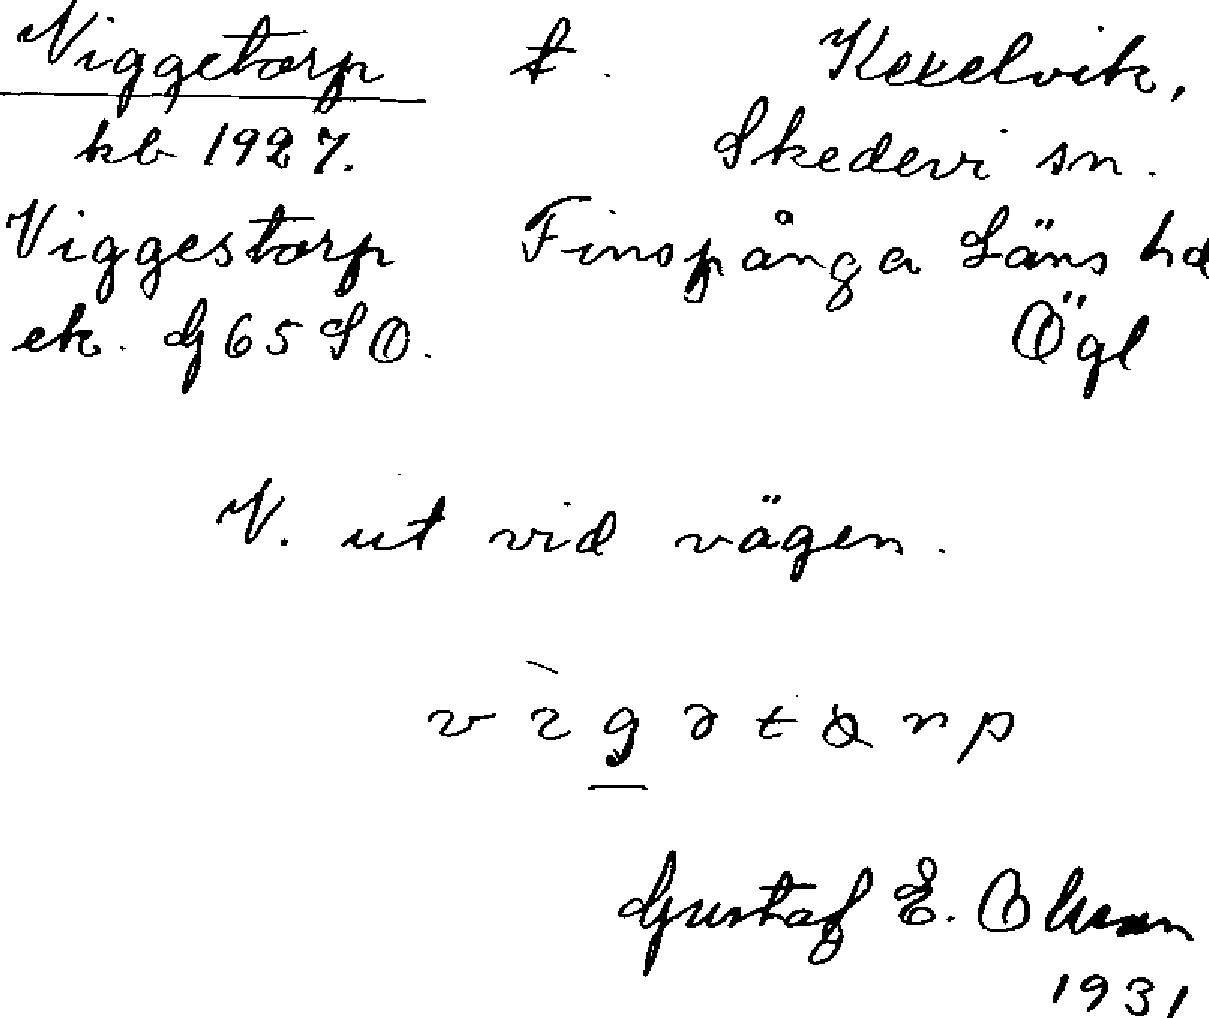 Viggetorp t. Kexelvik,
kb 1927. Skedevi sn.
Viggestorp Finspånga Läns hd
ek. G65SO. Ögl
V. ut vid vägen.
Gustaf E. Olsson
1931